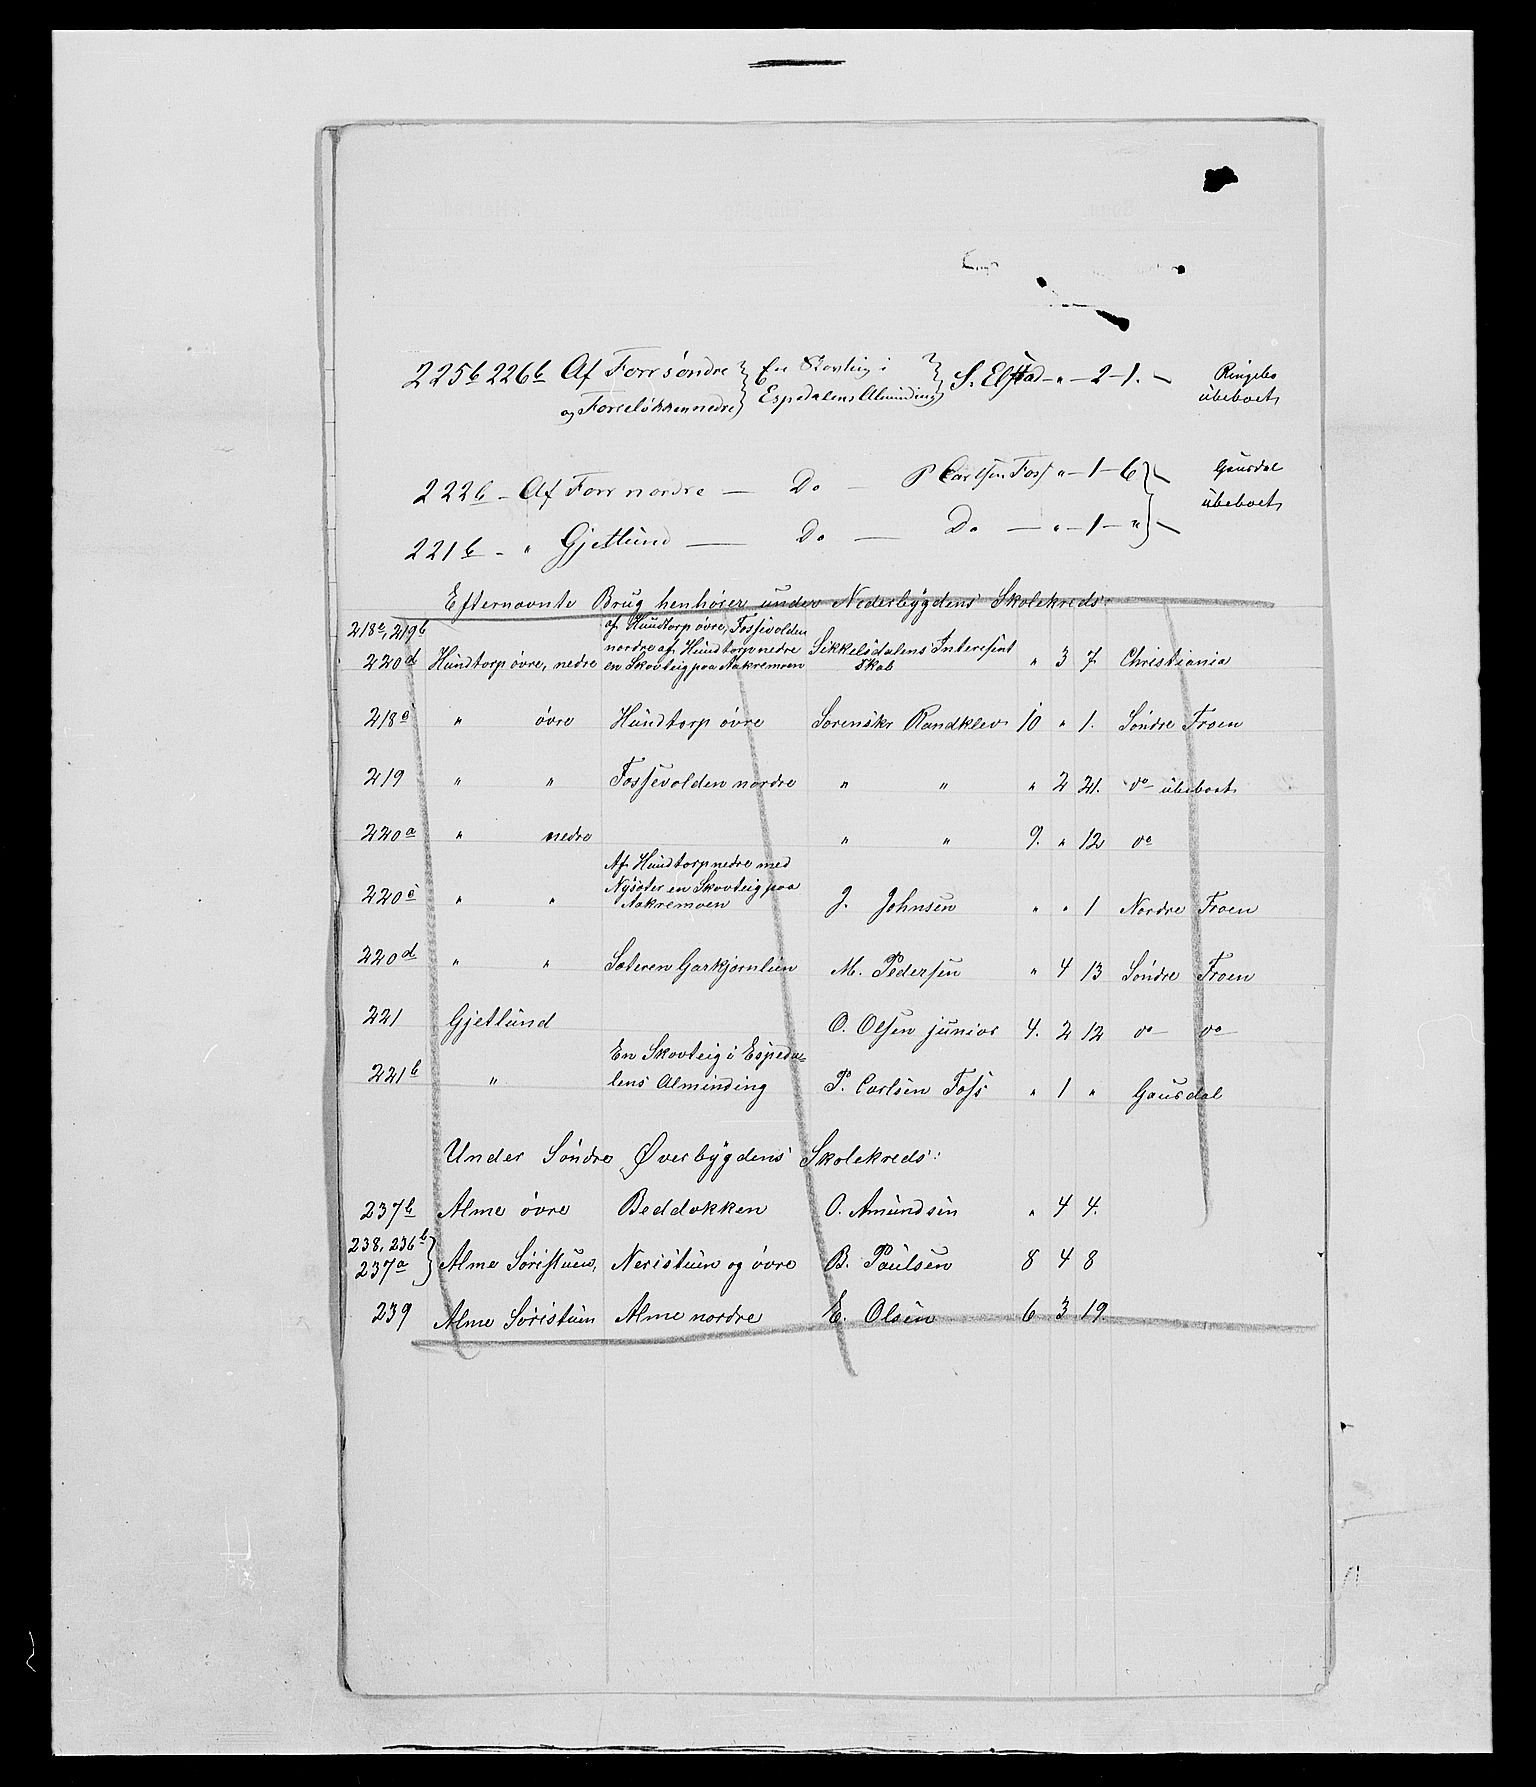 225b 226b Af Forr søndre } En Skovteig i } S. Elstad - " - 2 - 1. - Ringebo
og Forreløkken nedre } Espedalens Alminding } übeboet,
222b - Af Forr nordre - Do - P Carlsen Foss " - 1 - 6 } - Gausdal
übeboet,
221b - " Gjetlund - Do - Do - " - 1 - " } -
Efternævnte Brug henhører under Nederbygdens Skolekreds:
218e, 219b af Hundtorp øvre, Fossevolden
nordre af Hundtorp nedre Sikkelsdalens Interesent
220d Hundtorp øvre, nedre en Skovteig paa Aakremoen skab " 3 7 Christiania
218c " øvre Hundtorp øvre Sorenskr Randklev 10 " 1. Søndre Froen
219 " " Fossevolden nordre " " " 2 21. do übeboet,
220a " nedre " " 9. " 12 do
Af Hundtorp nedre med
Nysæter en Skovteig paa
220c " " Aakremoen J. Johnsen " " 1 Nordre Froen
220d " " Sæteren Gorkjørnlien M. Pedersen " 4 13 Søndre Froen
221 Gjetlund O. Olsen junior 4. 2 12 do do
En Skovteig i Espeda=
221b " lens Alminding P. Carlsen Foss " 1 " Gausdal
Under Søndre Øverbygdens Skolekreds:
237b Alme øvre Beddokken O. Amundsen " 4 4.
238, 236b }
237a } Alme Søristuen, Neristuen og øvre B. Poulsen 8 4 8
239 Alme Søristuen Alme nordre E. Olsen 6 3 19.